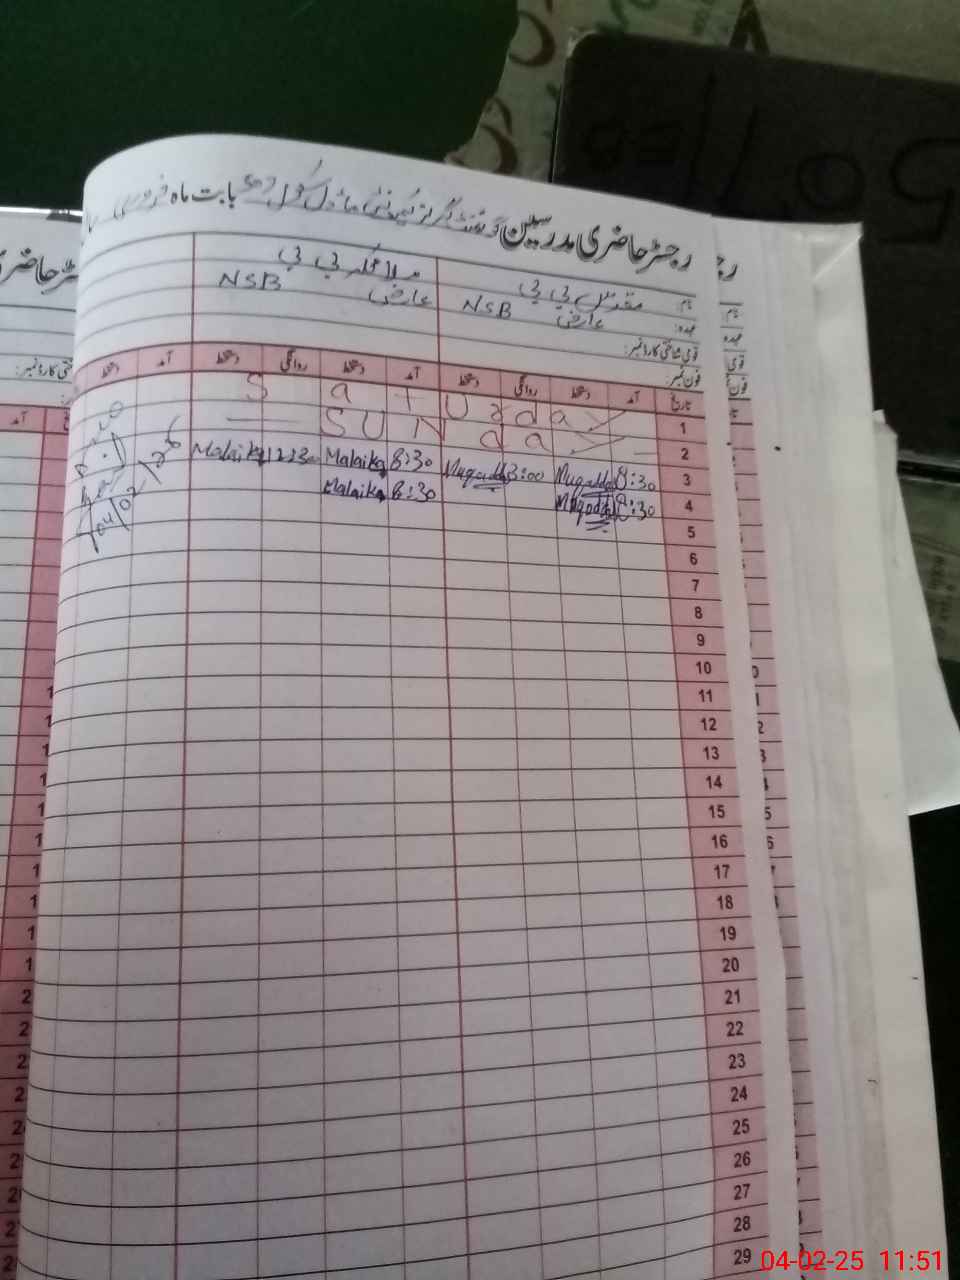 رجسٹر حاضری مدرسین گورنمنٹ گرلز کمیونٹی ماڈل سکول بابت ماہ فروری
نام: مقدس بی بی ملائکہ بی بی
عہدہ: عارضی NSB عارضی NSB
قومی شناختی کارڈ نمبر:
فون نمبر:
تاریخ آمد دستخط روانگی دستخط آمد دستخط روانگی دستخط آمد دستخط
1 Saturday
2 SUNday
3 8:30 Muqaddas 3:00 Muqaddas 8:30 Malaika 12:30 Malaika
4 8:30 Muqaddas 8:30 Malaika
5
6
7
8
9
10
11
12
13
14
15
16
17
18
19
20
21
22
23
24
25
26
27
28
29
04/02/26
رجسٹر حاضری
نام:
عہدہ
قومی
فون
آمد
04-02-25 11:51